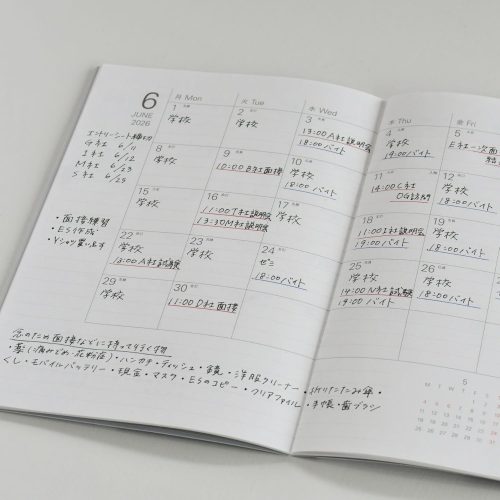 6
JUNE
2026
月 Mon
火 Tue
水 Wed
木 Thu
金 Fri
エントリーシート締切
G社 6/11
I社 6/12
M社 6/23
S社 6/25
・面接練習
・ES作成
・Yシャツ買い足す
1
学校
2
学校
3
13:00 A社説明会
18:00 バイト
4
学校
19:00 バイト
5
E社一次面
8
学校
9
10:00 B社面接
10
学校
18:00 バイト
11
14:00 C社
OG訪問
12
学校
18:00 バイト
15
学校
16
11:00 T社説明会
13:30 M社説明会
17
学校
18
11:00 I社説明会
19:00 バイト
19
学校
18:00 バイト
22
学校
13:00 A社試験
23
学校
24
ゼミ
18:00 バイト
25
学校
14:00 N社試験
19:00 バイト
26
学校
18:00 バイト
29
学校
30
11:00 D社面接
念のため面接などに持って行く物
・薬(痛みどめ・花粉症)・ハンカチ・ティッシュ・鏡・洋服クリーナー・折りたたみ傘・
くし・モバイルバッテリー・現金・マスク・ESのコピー・クリアファイル・手帳・歯ブラシ
5
M T W T F